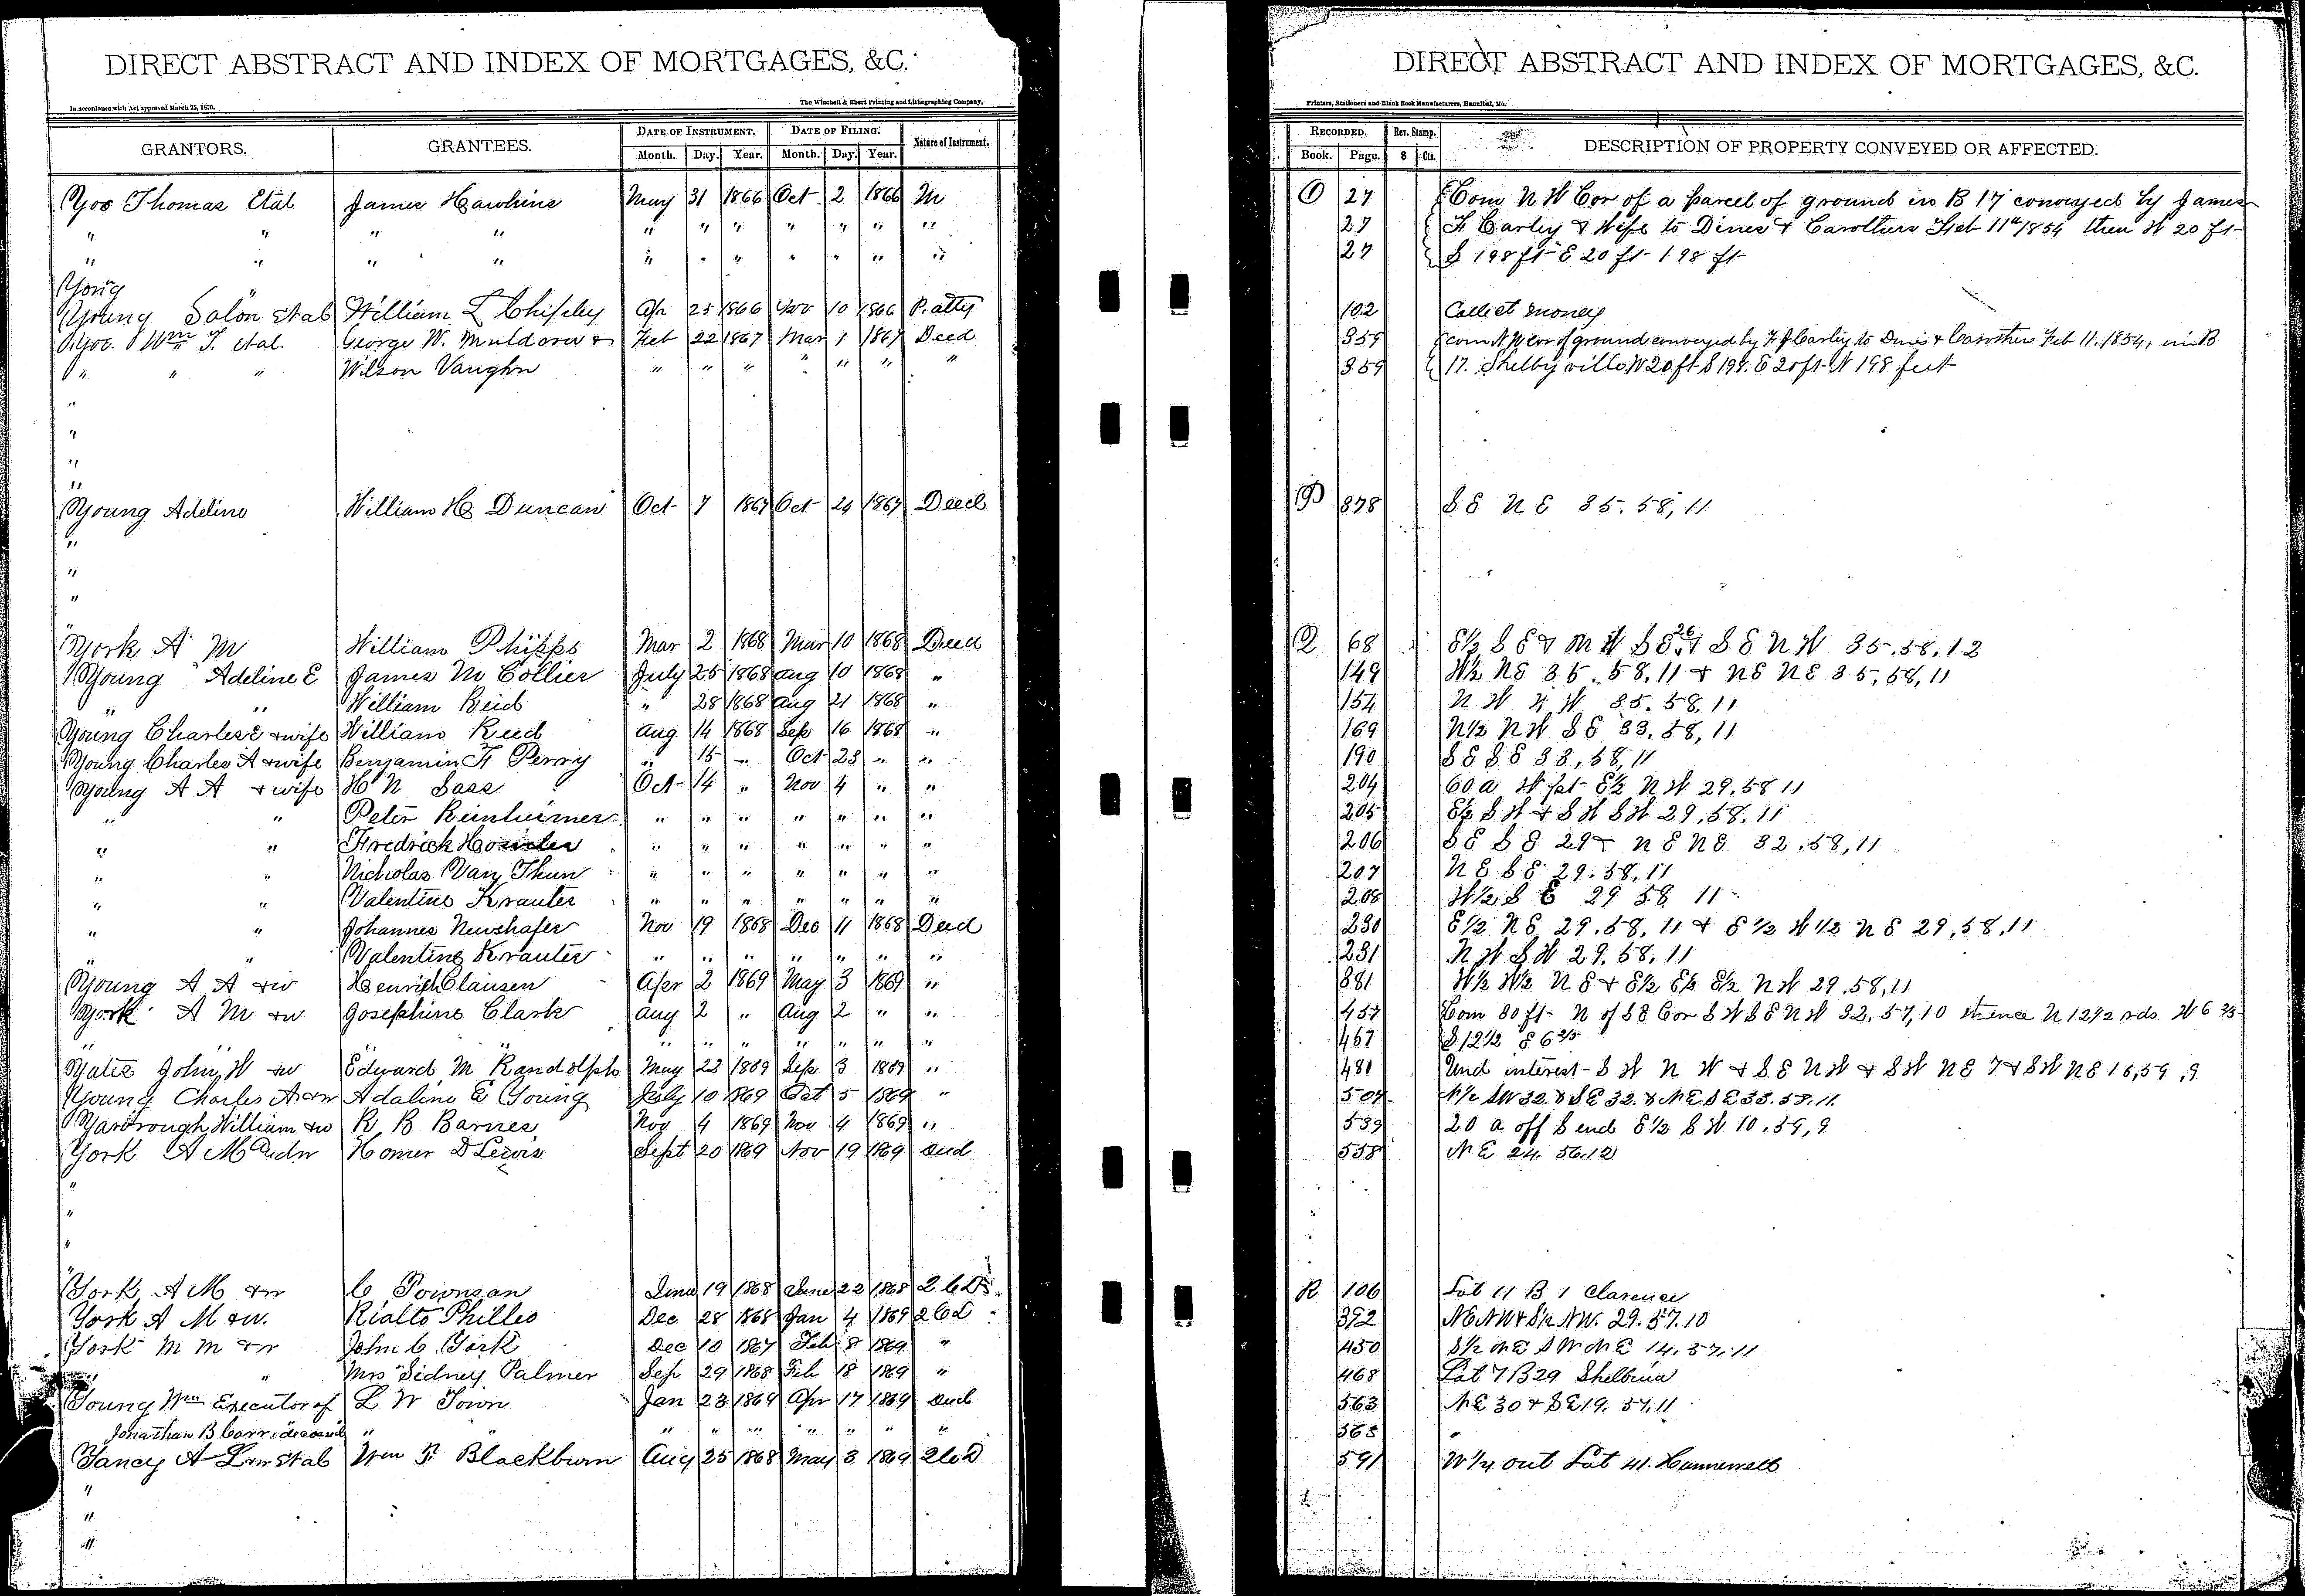 DIRECT ABSTRACT AND INDEX OF MORTGAGES, &C.
In accordance with Act approved March 25, 1870.
The Winchell & Ebert Printing and Lithographing Company.
GRANTORS. GRANTEES. DATE OF INSTRUMENT. DATE OF FILING. Nature of Instrument.
Month. Day. Year. Month. Day. Year.
Yoe Thomas Etal James Hawkins May 31 1866 Oct 2 1866 M
" " " " " " " " " " "
" " " " " " " " " " "
Yong
Young Solon etal William L Chipley Apr 25 1866 Nov 10 1866 P. atty
Yoe. Wm T. etal. George W. Muldrow & Feb 22 1867 Mar 1 1867 Deed
" " " Wilson Vaughn " " " " " " "
"
"
"
"
Young Adeline William H Duncan Oct 7 1867 Oct 24 1867 Deed
"
"
"
"
York A M William Phipps Mar 2 1868 Mar 10 1868 Deed
Young Adeline E James M Collier July 25 1868 Aug 10 1868 "
" " William Reid " 28 1868 Aug 21 1868 "
Young Charles E & wife William Reed Aug 14 1868 Sep 16 1868 "
Young Charles A & wife Benjamin F Perry " 15 " Oct 23 " "
Young A A & wife H N Sass Oct 14 " Nov 4 " "
" " Peter Reinheimer " " " " " " "
" " Fredrick " " " " " " "
" " Nicholas Van Thun " " " " " " "
" " Valentine Krauter " " " " " " "
" " Johannes Newshafer Nov 19 1868 Dec 11 1868 Deed
" " Valentine Krauter " " " " " " "
Young A A & w Henrich Clausen Apr 2 1869 May 3 1869 "
York A M & w Josephine Clark Aug 2 " Aug 2 " "
" " " " " " " " "
Yates John W & w Edward M Randolph May 22 1869 Sep 3 1869 "
Young Charles A & w Adaline E Young July 10 1869 Oct 5 1869 "
Yarbrough William & w R B Barnes Nov 4 1869 Nov 4 1869 "
York A M Homer D Lewis Sept 20 1869 Nov 19 1869 Deed
"
"
"
"
York A M & w C Townsan June 19 1868 June 22 1868 2 C D
York A M & w. Rialto Philleo Dec 28 1868 Jan 4 1869 2 C D
York M M & w John C. York Dec 10 1867 Feb 8 1869 "
" " Mrs Sidney Palmer Sep 29 1868 Feb 18 1869 "
Young Wm Executor of L. W Town Jan 23 1869 Apr 17 1869 Deed
Jonathan B Carr. deceased " " " " " " " " "
Yancy A L & w etal Wm F. Blackburn Aug 25 1868 May 3 1869 2 C D
"
"
"
DIRECT ABSTRACT AND INDEX OF MORTGAGES, &C.
Printers, Stationers and Blank Book Manufacturers, Hannibal, Mo.
RECORDED. Rev. Stamp. DESCRIPTION OF PROPERTY CONVEYED OR AFFECTED.
Book. Page. $ Cts.
O 27 Com N W Cor of a parcel of ground in B 17 conveyed by James
27 F Carley & Wife to Dines & Carothers Feb 11th 1854 then W 20 ft
27 S 198 ft E 20 ft 198 ft
102 Collect money
359 com N W cor of ground conveyed by F J Carley to Dines & Carothers Feb 11. 1854, in B
359 17. Shelbyville W 20 ft S 198. E 20 ft N 198 feet
P 378 S E N E 35. 58, 11
Q 68 E½ S E & N W S E 26 & S E N W 35. 58. 12
149 W½ N E 35. 58. 11 & N E N E 35, 58, 11
154 N W N W 35. 58, 11
169 N½ N W S E 33. 58, 11
190 S E S E 33, 58, 11
204 60 a W pt E½ N W 29. 58 11
205 E½ S W & S W S W 29. 58. 11
206 S E S E 29 & N E N E 32. 58, 11
207 N E S E 29. 58, 11
208 W½ S E 29 58 11
230 E½ N E 29. 58, 11 & E½ W½ N E 29, 58, 11
231 N W S W 29. 58, 11
381 W½ W½ N E & E½ E½ E½ N W 29. 58, 11
457 Com 80 ft N of S E Cor S W S E N W 32. 57, 10 thence N 12½ rds W 6
457 S 12½ E 6
480 Und interest S W N W & S E N W & S W N E 7 & S W N E 18, 59, 9
507 N½ S W 32. & S E 32. & N E S E 33. 58. 11.
539 20 a off S end E½ S W 10, 59, 9
558 N E 24. 56. 12
R 106 Lot 11 B 1 Clarence
392 N E N W & S½ N W. 29. 57. 10
450 S½ N E S W N E 14. 57. 11
468 Lot 7 B 29 Shelbina
563 N E 30 & S E 19. 57. 11
563 "
591 W¼ out Lot 41. Hunnewell